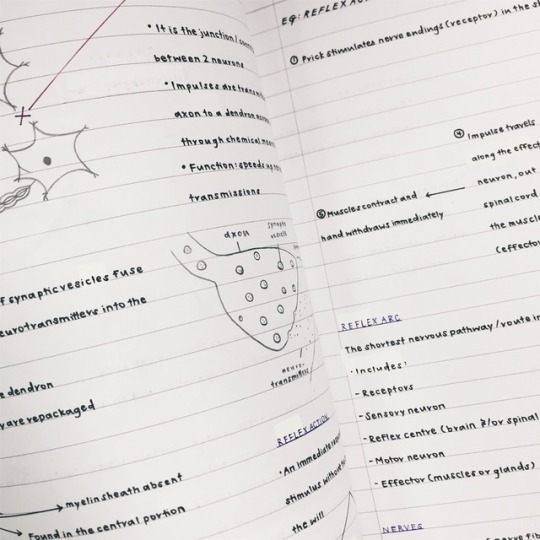 • It is the junction /
between 2 neurons
• Impulses are
axon to a dendron
through chemical
• Function: speeds up
transmissions
axon
synaptic
vesicles
f synaptic vesicles fuse
eurotransmitters into the
e dendron
are repackaged
transmitters
REFLEX ACTION
• An immediate
stimulus without
the will
myelin sheath absent
Found in the central portion
EG: REFLEX
① Prick stimulates nerve endings (receptor) in the
④ Impulse travels
along the effect
neuron, out
spinal cord
the muscle
(effector
⑤ Muscles contract and
hand withdraws immediately
REFLEX ARC
The shortest nervous pathway / route
• Includes:
- Receptors
- Sensory neuron
- Reflex centre (brain &/or spinal
- Motor neuron
- Effector (muscles or glands)
NERVES
of nerve